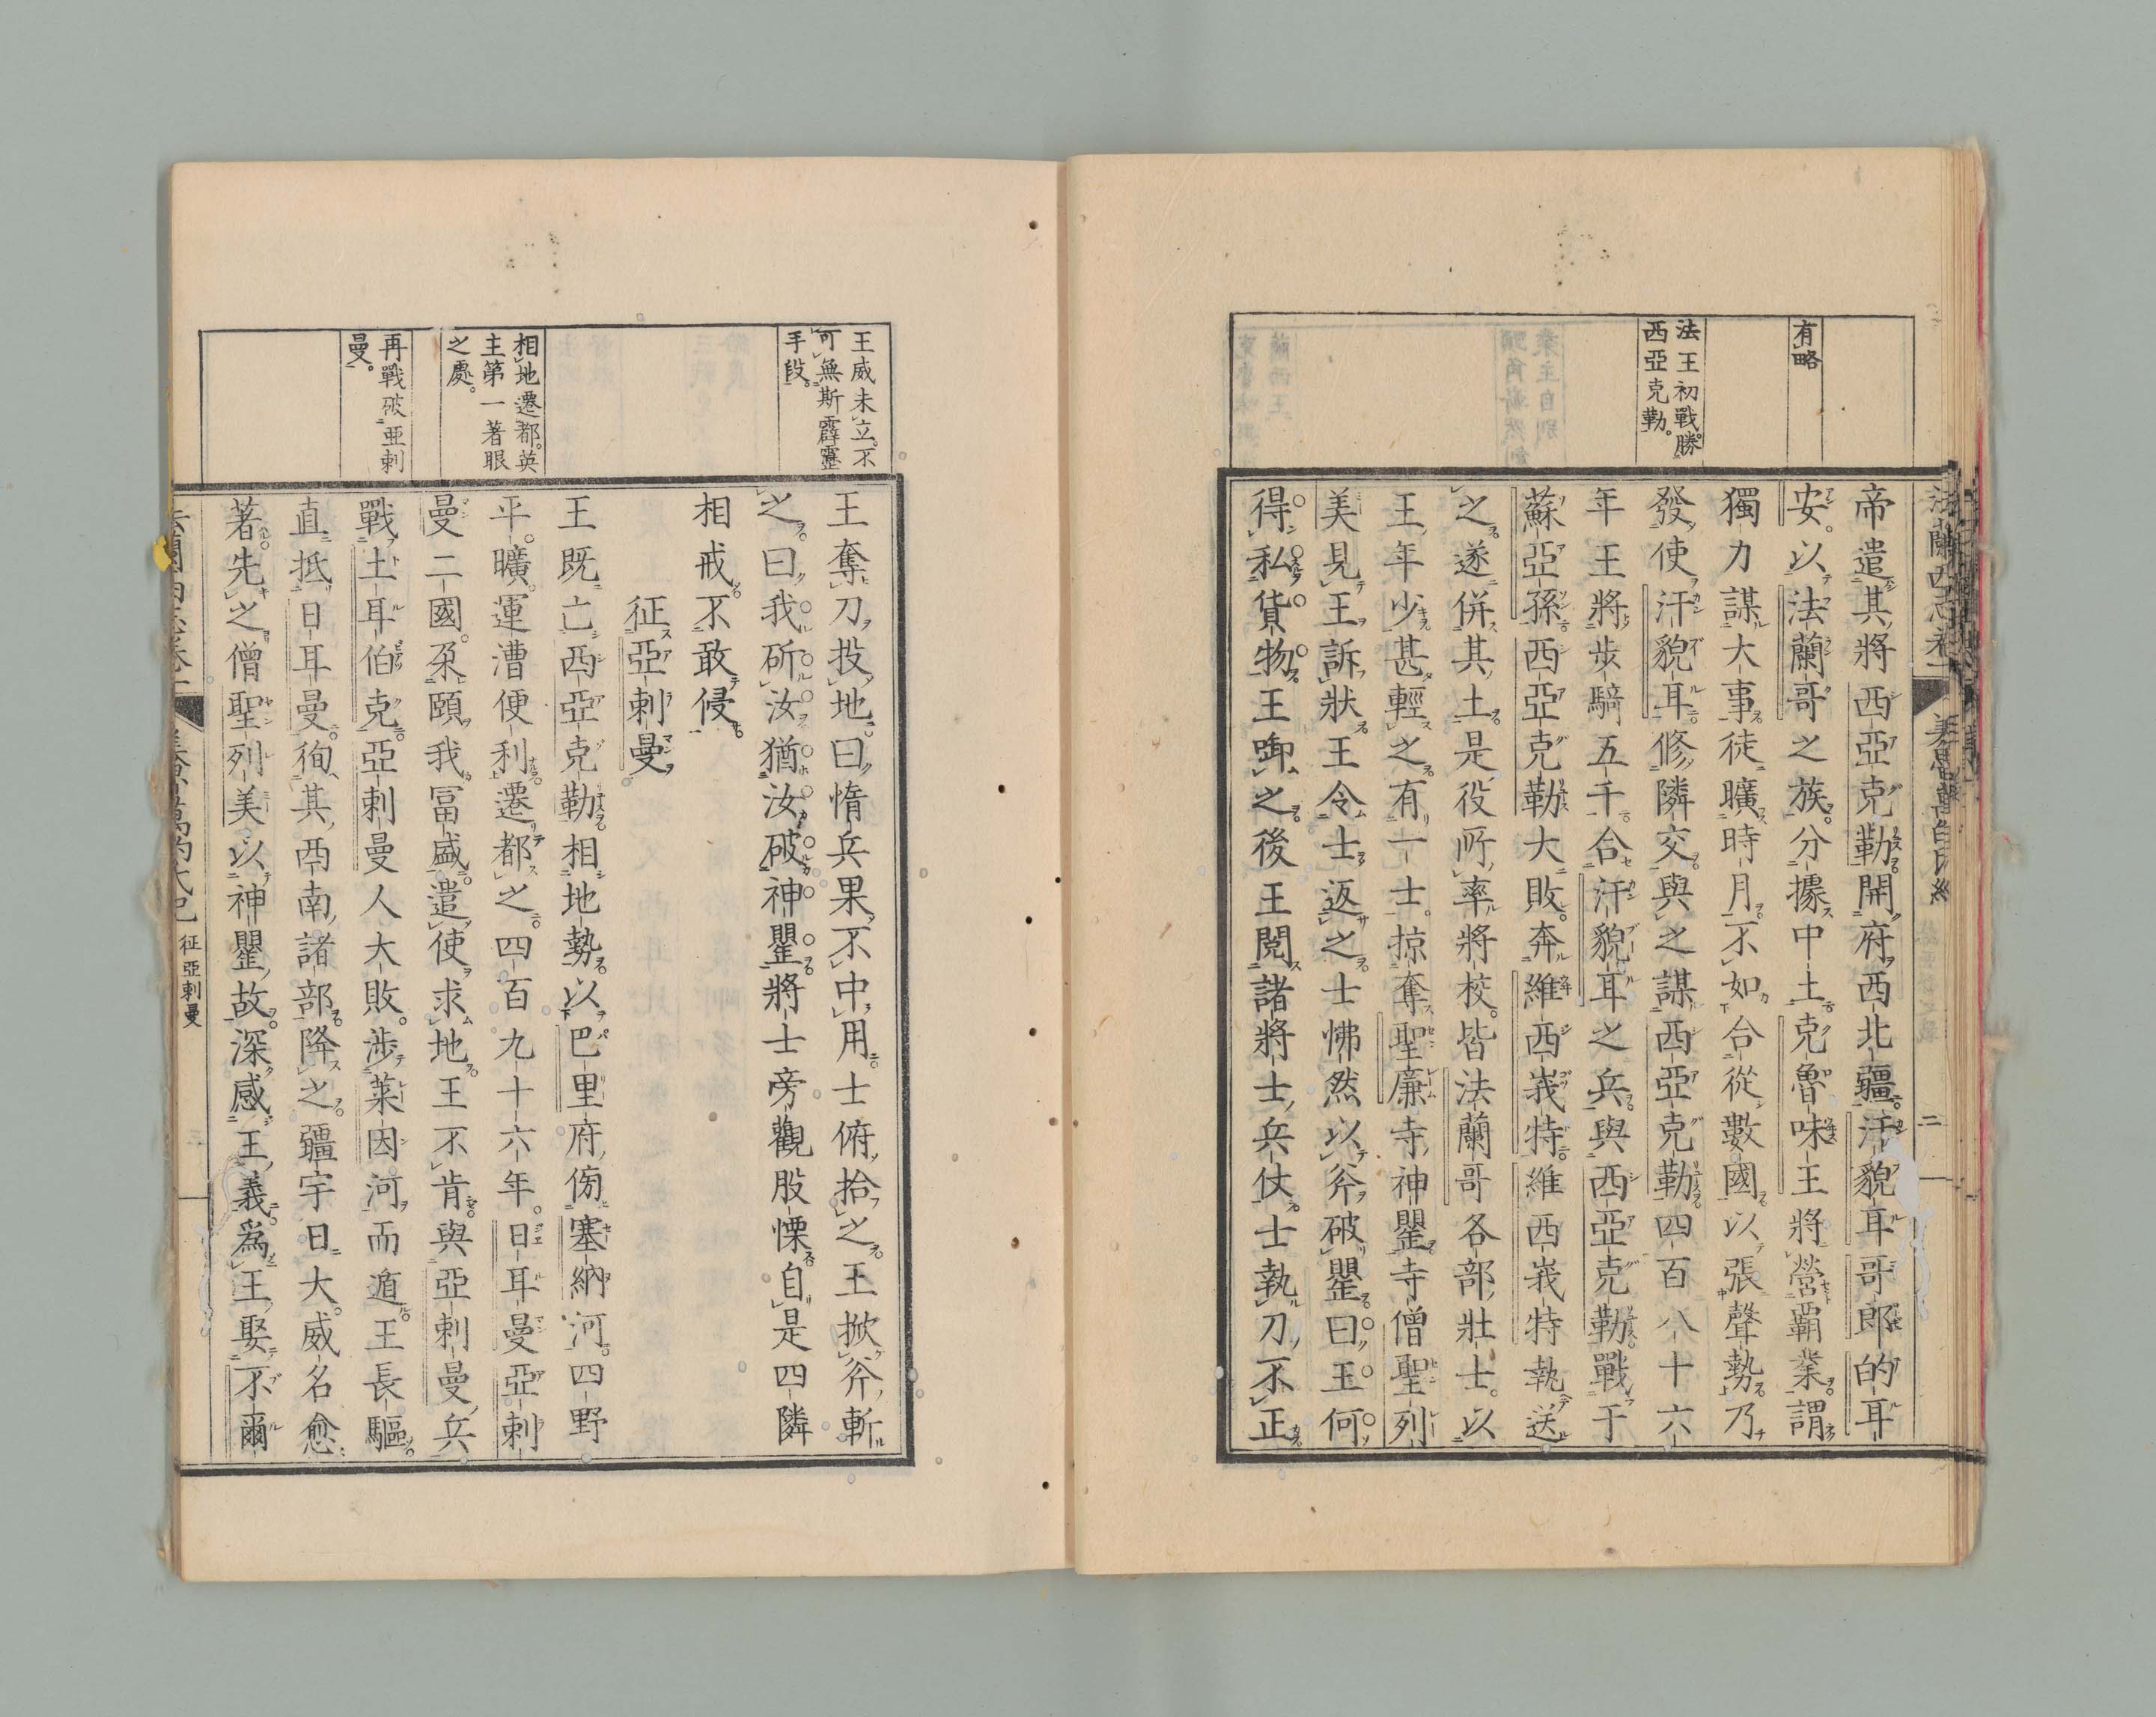 有略
法王初戰勝
西亞克勒。
帝遣其將西亞克勒開府西北疆汗貌耳哥郎的耳
安。以法蘭哥之族。分據中土克魯味王將營覇業謂
獨力謀大事徒曠時月不如合從數國以張聲勢乃
發使汗貌耳修隣交與之謀西亞克勒四百八十六
年王將步騎五千合汗貌耳之兵與西亞克勒戰于
蘇亞孫西亞克勒大敗。奔維西峩特維西峩特執送
之遂併其土是役所率將校。皆法蘭哥各部壯士。以
王年少甚輕之有一士。掠奪聖廉寺神瞿寺僧聖列
美見王訴狀王令士返之士怫然以斧破瞿曰王何
得私貨物王啣之後王閱諸將士兵仗士執刀不正
王威未立。不
可無斯霹靂
手段。
相地遷都。英
主第一著眼
之處。
再戰破亜剌
曼。
王奪刀投地曰惰兵果不中用士俯拾之王掀斧斬
之曰我斫汝猶汝破神瞿將士旁觀股慄自是四隣
相戒不敢侵
征亞剌曼
王既亡西亞克勒相地勢以巴里府傍塞納河。四野
平曠。運漕便利遷都之四百九十六年。日耳曼亞剌
曼二國。朶頤我冨盛遣使求地王不肯與亞剌曼兵
戰土耳伯克亞剌曼人大敗。涉萊因河而遁王長驅
直抵日耳曼徇其西南諸部降之疆宇日大。威名愈
著。先之僧聖列美以神瞿故深感王義爲王娶不爾
征亞剌曼
二